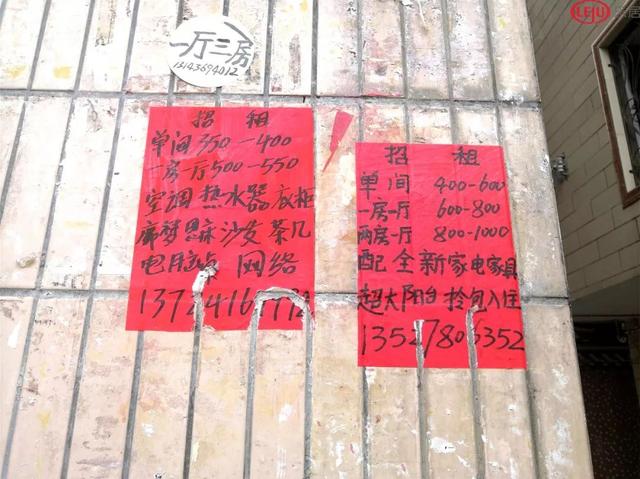 LEJU
一厅三房
13143694012
招 租
单间350—400
一房一厅500—550
空调 热水器 衣柜
席梦思床 沙发 茶几
网络
招 租
单间 400-600
一房一厅 600-800
两房一厅 800-1000
配全新家电家具
超大阳台 拎包入住
13527806352